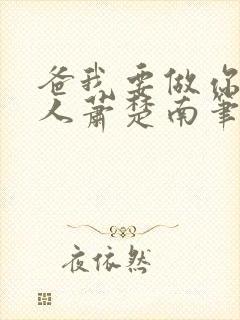 爸我要做你
人萧楚南笔
夜依然